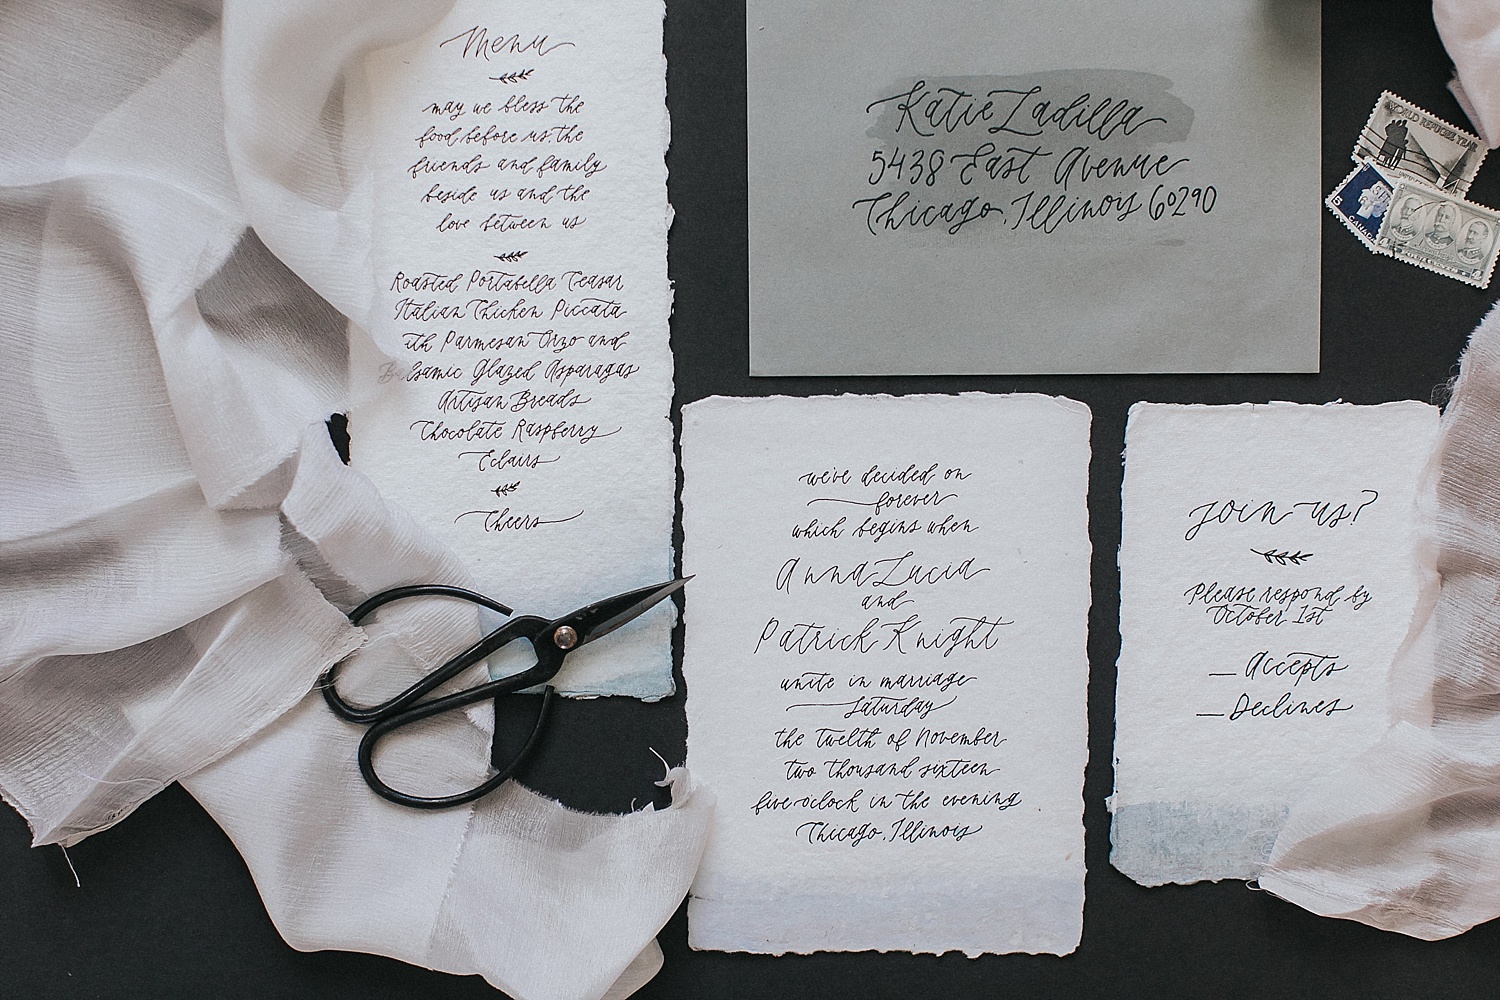 Menu
may we bless the
food before us, the
friends and family
beside us and the
love between us
Roasted Portabella Ceasar
Italian Chicken Piccata
ith Parmesan Orzo and
Balsamic Glazed Asparagas
Artisan Breads
Chocolate Raspberry
Eclairs
Cheers
Katie Zadilla
5438 East Avenue
Chicago, Illinois 60290
WORLD REFUGEE YEAR
5
CANADA
4
we've decided on
forever
which begins when
Anna Lucia
and
Patrick Knight
unite in marriage
Saturday
the twelth of November
two thousand sixteen
five o'clock in the evening
Chicago, Illinois
join us?
Please respond by
October 1st
_Accepts
_Declines